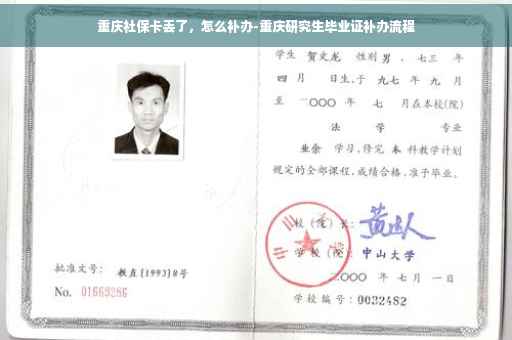 重庆社保卡丢了，怎么补办-重庆研究生毕业证补办流程
学生 贺文龙 性别 男，七三 年
四 月 日生，于 九七 年 九 月
至 二〇〇〇 年 七 月在本校(院)
法 学 专业
业余 学习，修完 本 科教学计划
规定的全部课程，成绩合格，准予毕业。
校（院）长：
学校（院）：中山大学
二〇〇〇 年 七 月 一 日
学校编号：0032482
批准文号：教直[1993]8号
No. 01663286